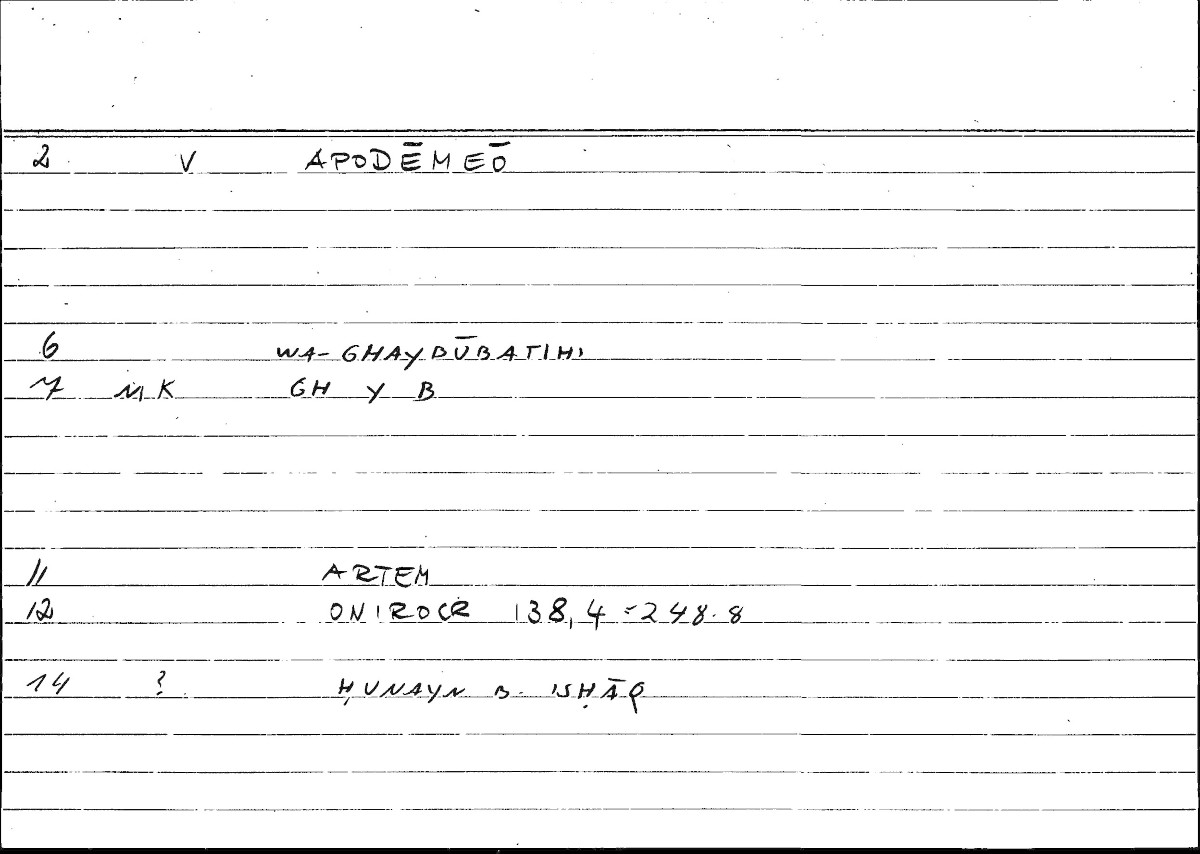 2 V APODĒMEŌ
6 WA-GHAYBŪBATIHI
7 MK GH Y B
11 ARTEM
12 ONIROCR 138,4 = 248.8
14 ? ḤUNAYN B. ISḤĀQ